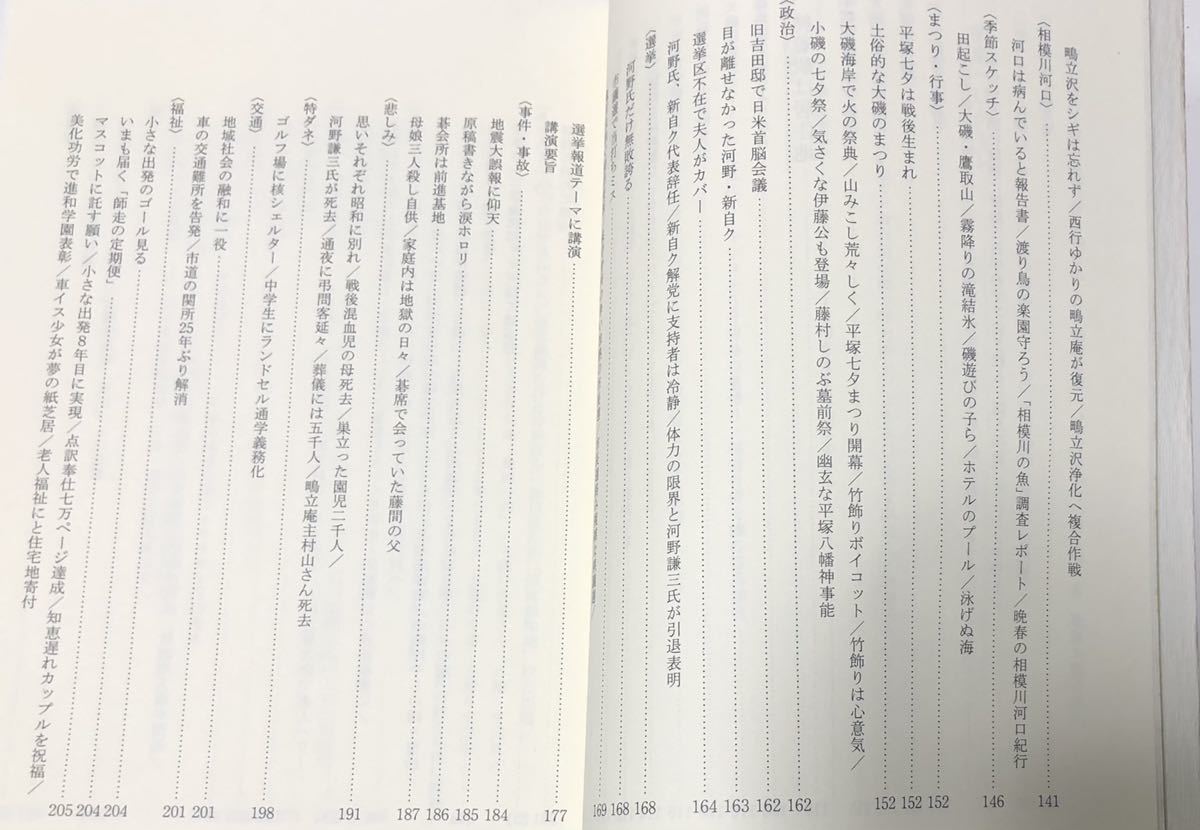 鴫立沢をシギは忘れず／西行ゆかりの鴫立庵が復元／鴫立沢浄化へ複合作戦
〈相模川河口〉……141
河口は病んでいると報告書／渡り鳥の楽園守ろう／「相模川の魚」調査レポート／晩春の相模川河口紀行
〈季節スケッチ〉……146
田起こし／大磯・鷹取山／霧降りの滝結氷／磯遊びの子ら／ホテルのプール／泳げぬ海
〈まつり・行事〉……152
平塚七夕は戦後生まれ……152
土俗的な大磯のまつり……152
大磯海岸で火の祭典／山みこし荒々しく／平塚七夕まつり開幕／竹飾りボイコット／竹飾りは心意気／
小磯の七夕祭／気さくな伊藤公も登場／藤村しのぶ墓前祭／幽玄な平塚八幡神事能
〈政治〉……162
旧吉田邸で日米首脳会議……162
目が離せなかった河野・新自ク……163
選挙区不在で夫人がカバー……164
河野氏、新自ク代表辞任／新自ク解党に支持者は冷静／体力の限界と河野謙三氏が引退表明
〈選挙〉……168
河野氏だけ無敗誇る……168
169
選挙報道テーマに講演
講演要旨……177
〈事件・事故〉……
地震大誤報に仰天……184
原稿書きながら涙ホロリ……185
碁会所は前進基地……186
母娘三人殺し自供／家庭内は地獄の日々／碁席で会っていた藤間の父
〈悲しみ〉……187
思いそれぞれ昭和に別れ／戦後混血児の母死去／巣立った園児二千人／
河野謙三氏が死去／通夜に弔問客延々／葬儀には五千人／鴫立庵主村山さん死去
〈特ダネ〉……191
ゴルフ場に核シェルター／中学生にランドセル通学義務化
〈交通〉……198
地域社会の融和に一役……201
車の交通難所を告発／市道の関所25年ぶり解消
〈福祉〉……201
小さな出発のゴール見る……204
いまも届く「師走の定期便」……204
マスコットに託す願い／小さな出発８年目に実現／点訳奉仕七万ページ達成／知恵遅れカップルを祝福／……205
美化功労で進和学園表彰／車イス少女が夢の紙芝居／老人福祉にと住宅地寄付